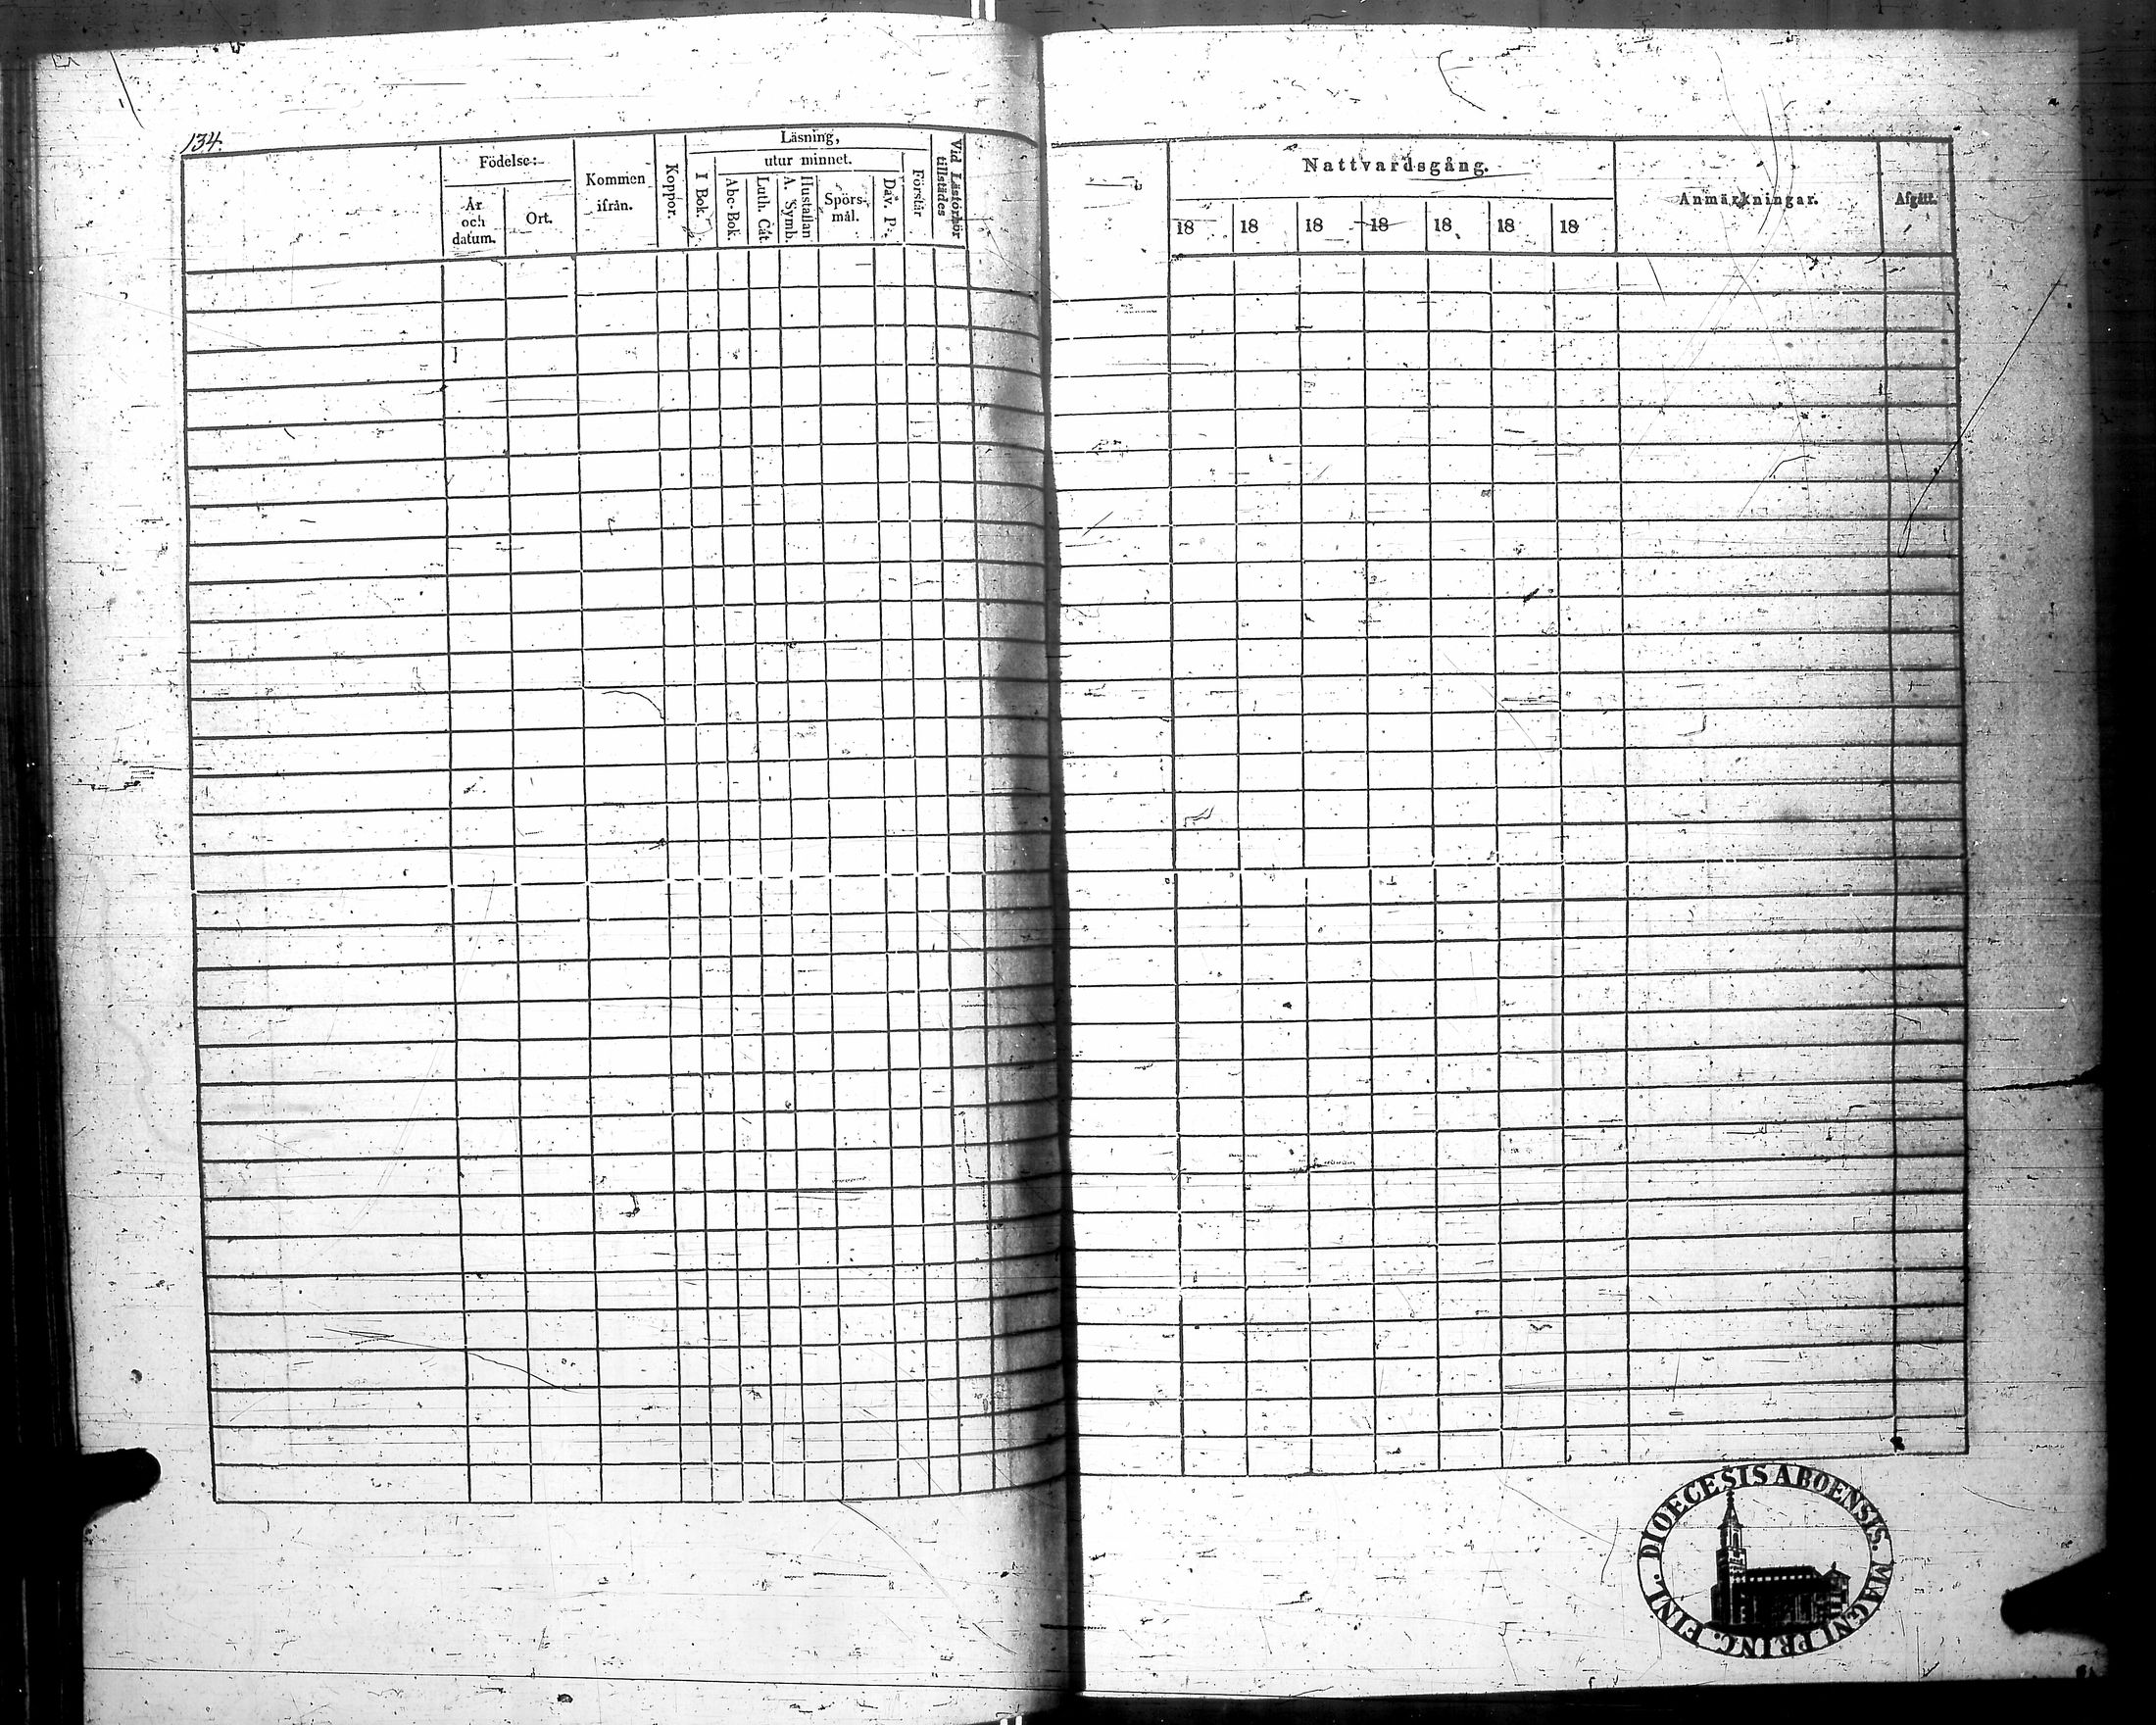 134.
Födelse:
År
och
datum.
Ort.
Kommen
ifrån.
Koppor.
Läsning,
I Bok.
utur minnet.
Abc-Bok.
Luth. Cat.
A. Symb.
Hustaflan
Spörs-
mål.
Dav. P.
Förstår
Vid Läsförhör
tillstädes
Nattvardsgång.
18 18 18 18 18 18 18
Anmärkningar.
Afgått.
DIOECESIS ABOENSIS. MAGNI PRINC. FINL.